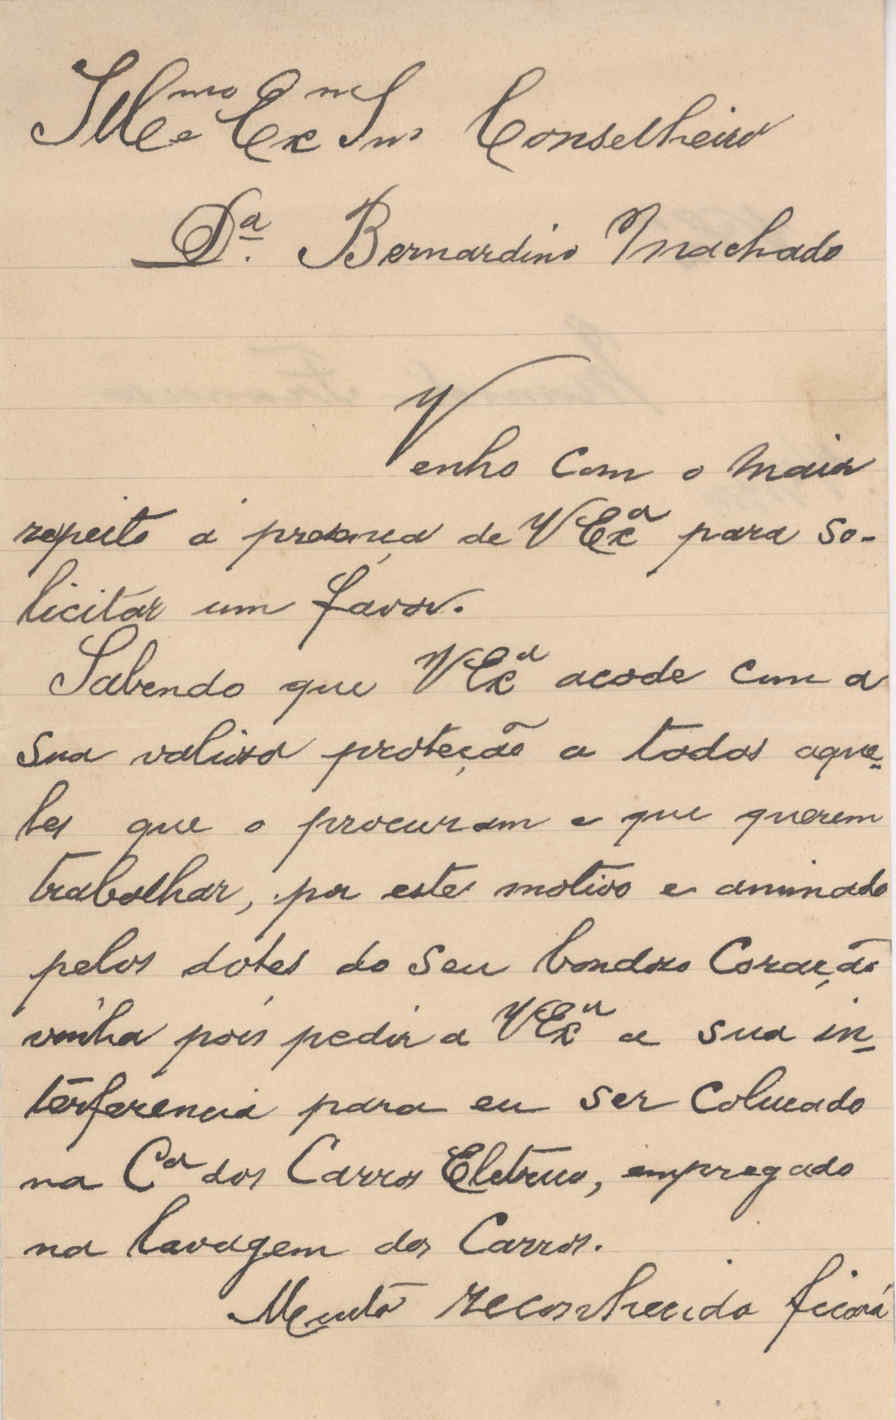 Illmo e Exmo Snr Conselheiro
Dr. Bernardino Machado
Venho com o maior
respeito á presença de V Exa para so-
licitar um favor.
Sabendo que V Exa acode com a
sua valiosa proteção a todos aque-
les que o procuram e que querem
trabalhar, por este motivo e animado
pelos dotes do seu bondoso Coração
vinha pois pedir a V Exa a sua in-
terferencia para eu ser colucado
na Ca dos Carros Eletricos, empregado
na lavagem dos Carros.
Muito reconhecido ficará